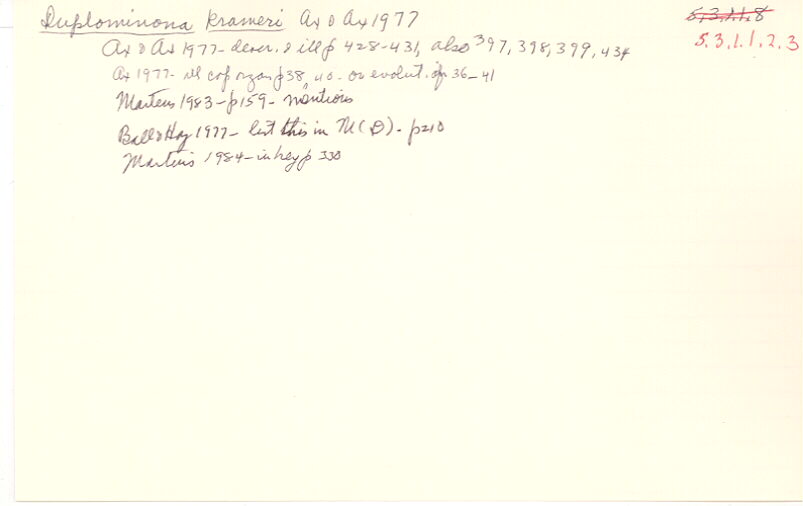 Duplominona krameri Ax & Ax 1977 5,3,1,1,8
5.3.1.1.2.3
Ax & Ax 1977 - descr. & ill p 428-431, also 397, 398, 399, 434
Ax 1977 - ill cop organ p 38, 40 - on evolut. of p 36-41
Martens 1983 - p159 - mentions
Ball & Hay 1977 - list this in M(D) - p210
Martens 1984 - in key p 330